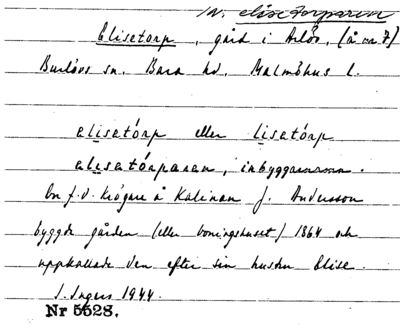 in. elisetorparen
Elisetorp, gård i Arlöv, (å nr 7)
Burlövs sn. Bara hd, Malmöhus l.
elisetórp eller lisetórp
elisetórparen, inbyggarnamn.
En f.d. krögare å Kalinan J. Andersson
byggde gården (eller boningshuset) 1864 och
uppkallade den efter sin hustru Elise.
I. Ingers 1944.
Nr 5528.